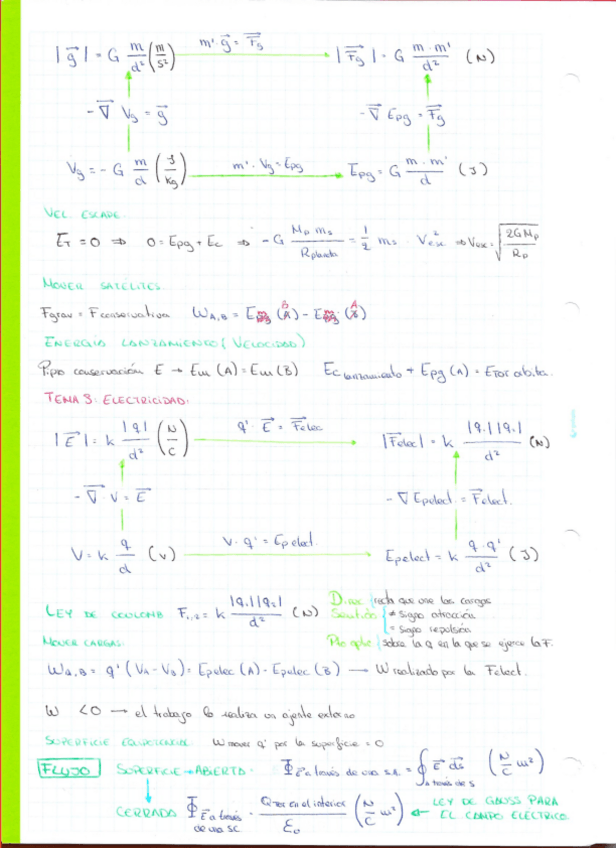 |g⃗| = G m/d² (m/s²) m'·g⃗ = F⃗g |F⃗g| = G m·m'/d² (N)
-∇⃗ Vg = g⃗ -∇⃗ Epg = F⃗g
Vg = -G m/d (J/Kg) m'·Vg = Epg Epg = G m·m'/d (J)
VEL. ESCAPE:
ET = 0 ⇒ 0 = Epg + Ec ⇒ -G Mp ms/Rplaneta = 1/2 ms · V²esc ⇒ Vesc = √(2GMp/Rp)
MOVER SATÉLITES.
Fgrav = Fconservativa WA,B = E (B) - E (A)
ENERGIA LANZAMIENTO (VELOCIDAD)
Ppio conservación E → Em(A) = Em(B) Ec lanzamiento + Epg(A) = ETOT orbita.
TEMA 3: ELECTRICIDAD:
|E⃗| = k |q|/d² (N/C) q'·E⃗ = F⃗elec |F⃗elec| = k |q.||q.|/d² (N)
-∇⃗·V = E⃗ -∇ Epelect. = F⃗elect.
V = k q/d (V) V·q' = Epelect. Epelect = k q·q'/d² (J)
LEY DE COULOMB F1,2 = k |q.||q.|/d² (N) Direc { recta que une las cargas
Sentido { ≠ signo atracción
= signo repulsión
MOVER CARGAS: Pto aplic { sobre la q en la que se ejerce la F.
WA,B = q' (VA - VB) = Epelec (A) - Epelec (B) → W realizado por la Felect.
W < 0 → el trabajo lo realiza un ajente externo
SUPERFICIE EQUIPOTENCIAL: W mover q' por la superficie = 0
FLUJO SUPERFICIE → ABIERTA: Φ E⃗ a través de una s.a. = ∮ a través de s E⃗ ds⃗ (N/C m²)
CERRADA Φ E⃗ a través de una sc = Q en el interior/ε₀ (N/C m²) ← LEY DE GAUSS PARA
EL CAMPO ELÉCTRICO.